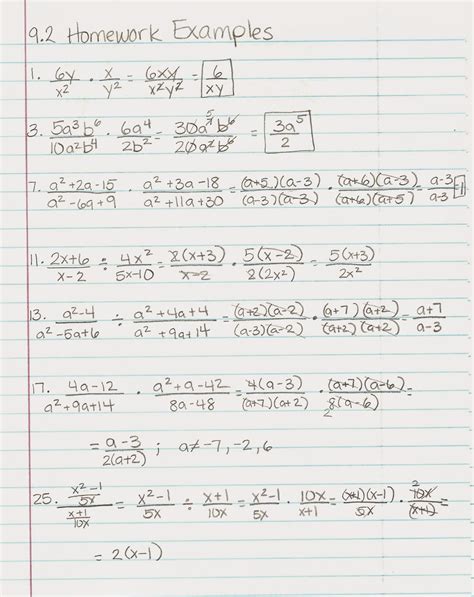 9.2 Homework Examples
1. 6y/x² · x/y² = 6xy/x²y² = 6/xy
3. 5a³b⁶/10a²b⁴ · 6a⁴/2b² = 30a⁷b⁶/20a²b⁶ = 3a⁵/2
7. a²+2a-15/a²-6a+9 · a²+3a-18/a²+11a+30 = (a+5)(a-3)/(a-3)(a-3) · (a+6)(a-3)/(a+6)(a+5) = a-3/a-3 = 1
11. 2x+6/x-2 ÷ 4x²/5x-10 = 2(x+3)/x-2 · 5(x-2)/2(2x²) = 5(x+3)/2x²
13. a²-4/a²-5a+6 ÷ a²+4a+4/a²+9a+14 = (a+2)(a-2)/(a-3)(a-2) · (a+7)(a+2)/(a+2)(a+2) = a+7/a-3
17. 4a-12/a²+9a+14 · a²+a-42/8a-48 = 4(a-3)/(a+7)(a+2) · (a+7)(a-6)/8(a-6) =
= a-3/2(a+2) ; a≠-7,-2,6
25. x²-1/5x / x+1/10x = x²-1/5x ÷ x+1/10x = x²-1/5x · 10x/x+1 = (x+1)(x-1)/5x · 10x/(x+1) =
= 2(x-1)